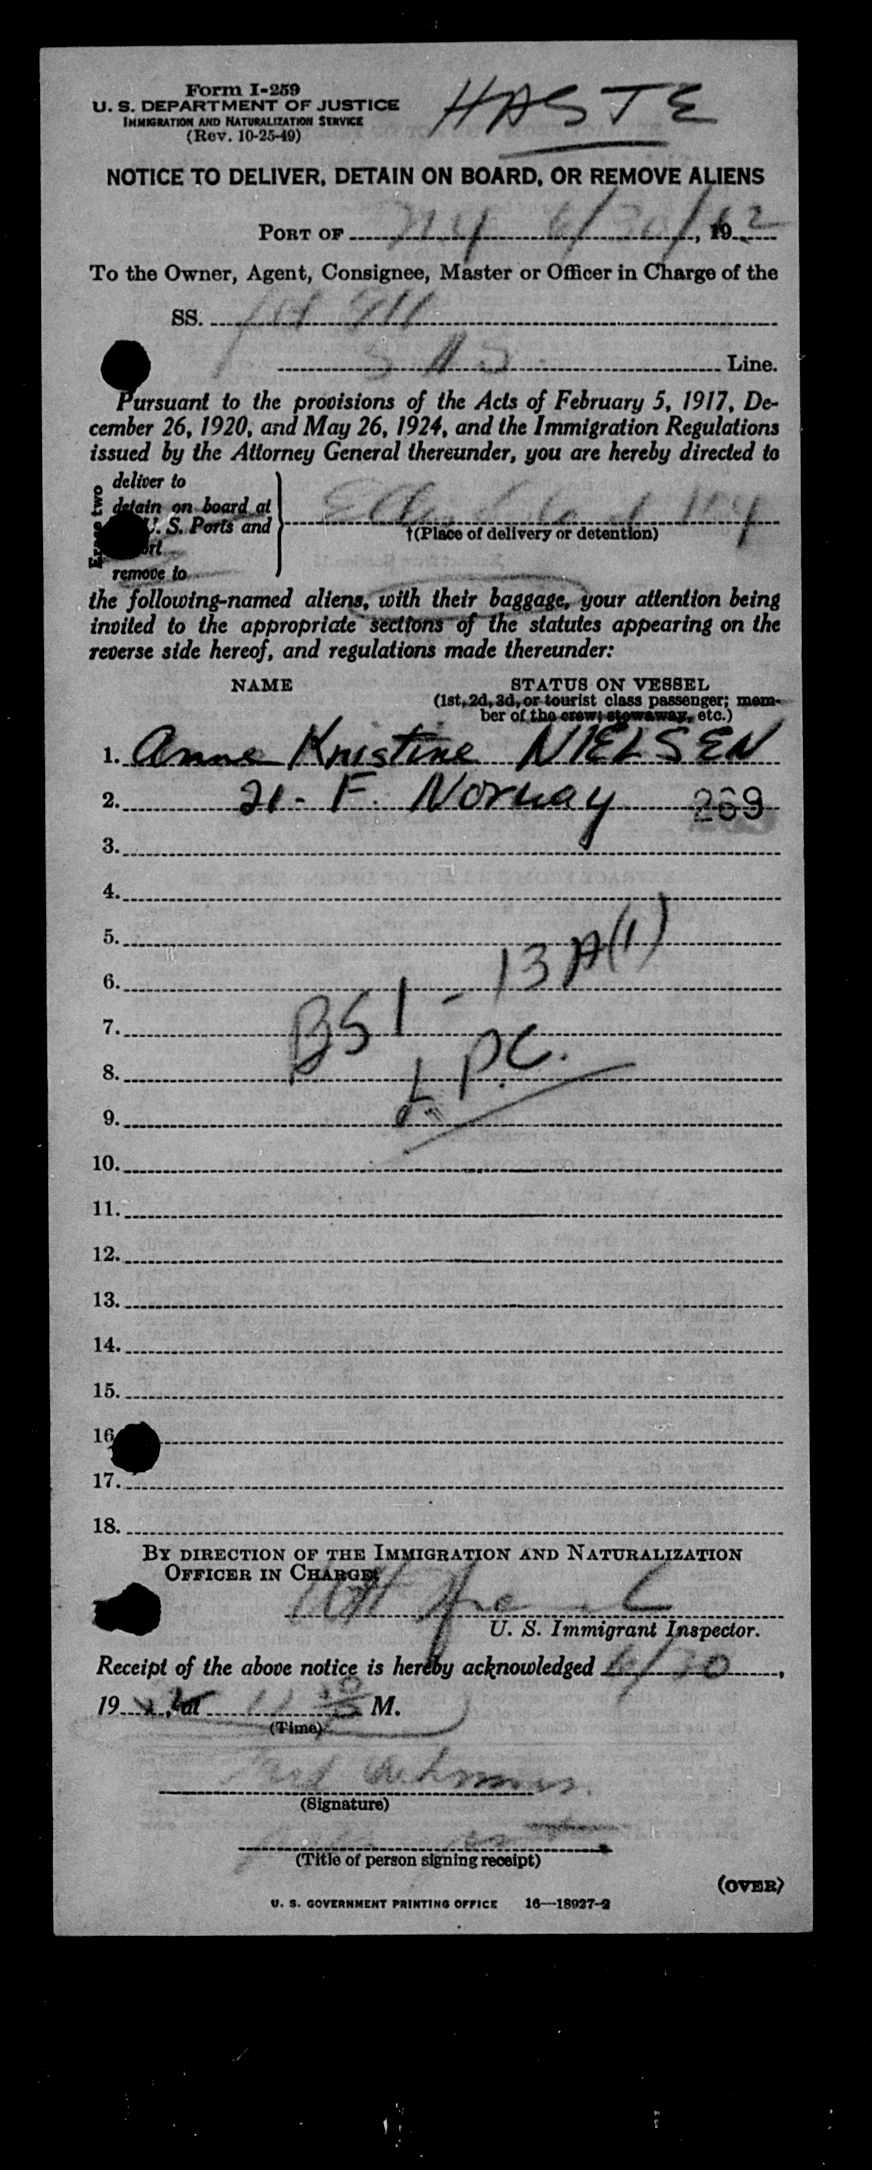 Form I-259
HASTE
U. S. DEPARTMENT OF JUSTICE
IMMIGRATION AND NATURALIZATION SERVICE
(Rev. 10-25-49)
NOTICE TO DELIVER, DETAIN ON BOARD, OR REMOVE ALIENS
PORT OF NY 6/30/, 1952
To the Owner, Agent, Consignee, Master or Officer in Charge of the
SS. 911
SAS Line.
Pursuant to the provisions of the Acts of February 5, 1917, De-
cember 26, 1920, and May 26, 1924, and the Immigration Regulations
issued by the Attorney General thereunder, you are hereby directed to
Erase two
deliver to
detain on board at
U. S. Ports and
remove to
Ellis Island NY
†(Place of delivery or detention)
the following-named aliens, with their baggage, your attention being
invited to the appropriate sections of the statutes appearing on the
reverse side hereof, and regulations made thereunder:
NAME STATUS ON VESSEL
(1st, 2d, 3d, or tourist class passenger; mem-
ber of the crew; stowaway, etc.)
1. Anne Kristine NIELSEN
2. 21 - F. Norway 269
3.
4.
5.
6. BSI - 13A(1)
7.
8. L.P.C.
9.
10.
11.
12.
13.
14.
15.
16.
17.
18.
BY DIRECTION OF THE IMMIGRATION AND NATURALIZATION
OFFICER IN CHARGE:
U. S. Immigrant Inspector.
Receipt of the above notice is hereby acknowledged 6/30,
19 , at 11 M.
(Time)
(Signature)
(Title of person signing receipt)
(OVER)
U. S. GOVERNMENT PRINTING OFFICE 16—18927-2